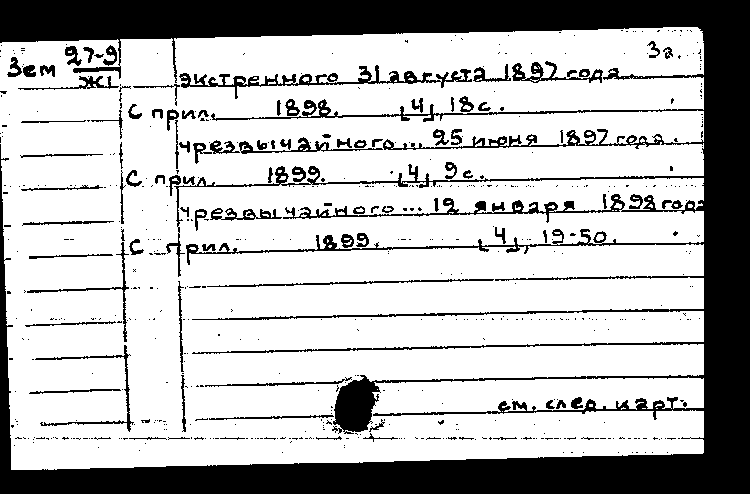 3а.
Зем 27-9
Ж1
экстренного 31 августа 1897 года.
С прил. 1898. [4], 18 с.
чрезвычайного... 25 июня 1897 года.
С прил. 1899. [4], 9 с.
чрезвычайного... 12 января 1898 года
С прил. 1899. [4], 19-50.
см. след. карт.